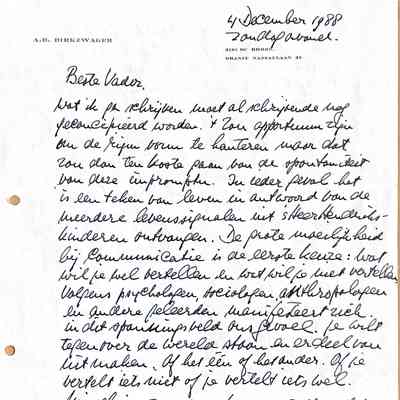 4 December 1988
zondagavond.
A.B. DIRKZWAGER
ORANJE NASSAULAAN
Beste Vador,
Wat ik ga schrijven moet al schrijvende nog
geconcipieerd worden. 't Zou opportuun zijn
om de rijm vorm te hanteren maar dat
zou dan ten koste gaan van de spontaniteit
van deze impromptu. In ieder geval het
is een teken van leven in antwoord van de
meerdere levenssignalen uit
kinderen ontvangen. De grote moeilijkheid
bij communicatie is de eerste keuze: wat
wil je wel vertellen en wat wil je niet vertellen
Volgens psychologen, sociologen, anthropologen
en andere geleerden manifesteert zich
in dit spanningsveld ons gevoel. Je wilt
tegenover de wereld staan en er deel van
uit maken. Of het één of het ander. Of je
vertelt iets niet of je vertelt iets wel.